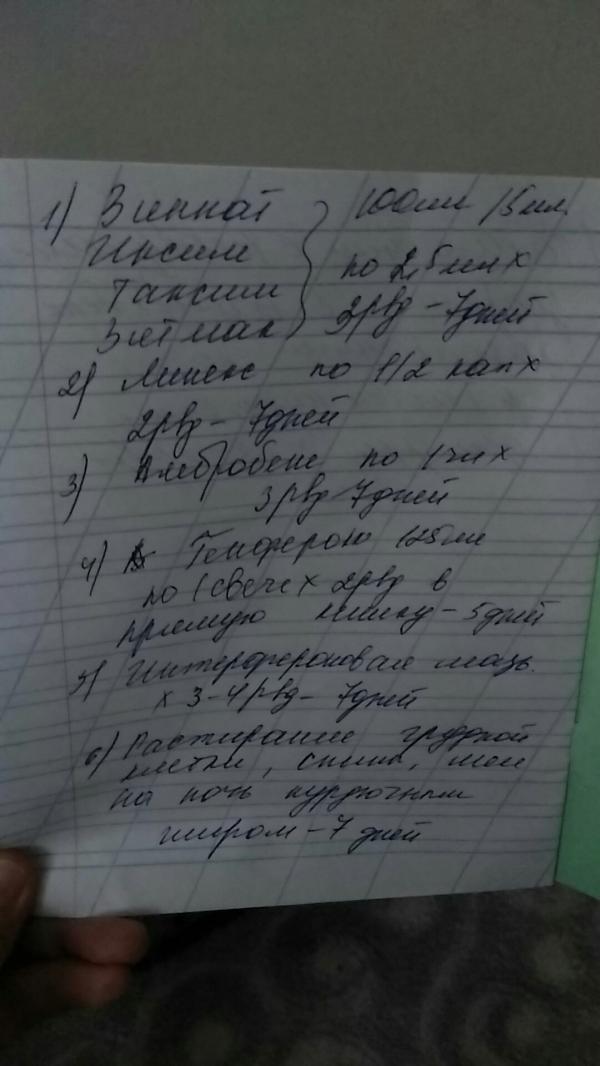 1) Зиннат } 100мл /5мл.
Иксим
Таксим } по 2,5мл х
Зетмак 2рвд - 7дней
2) Линекс по 1/2 капх
2рвд - 7дней
3) Амбробене по 1чл х
3рвд 7дней
4) Генферон 125
по 1свече х 2рвд в
прямую кишку - 5дней
5) Интерфероновая мазь.
х 3-4рвд - 7дней
6) Растирание грудной
клетки, спины, шеи
на ночь курдючным
жиром - 7 дней